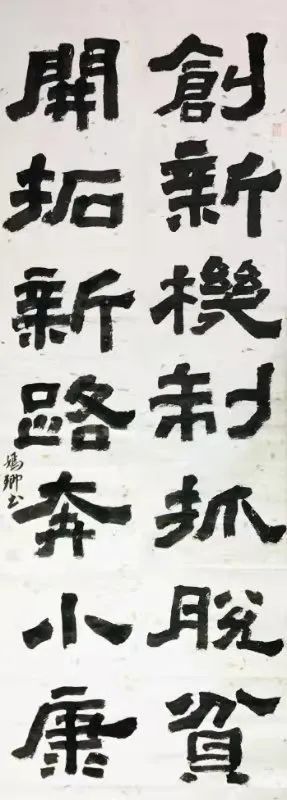 創新機制抓脫貧
開拓新路奔小康
鳴卿书